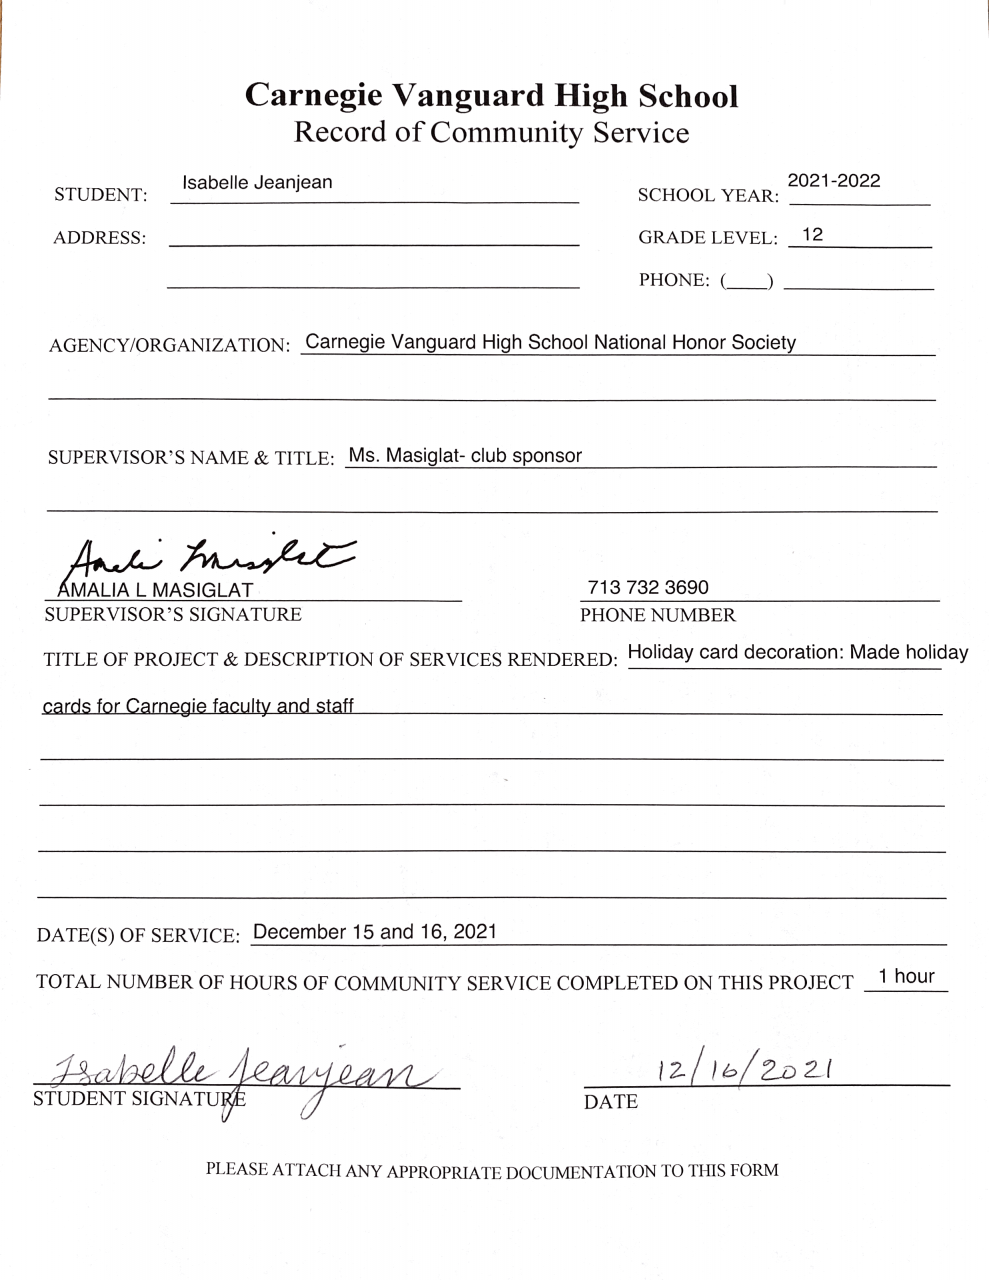 Carnegie Vanguard High School
Record of Community Service
STUDENT: Isabelle Jeanjean
SCHOOL YEAR: 2021-2022
ADDRESS:
GRADE LEVEL: 12
PHONE: (____)
AGENCY/ORGANIZATION: Carnegie Vanguard High School National Honor Society
SUPERVISOR'S NAME & TITLE: Ms. Masiglat- club sponsor
Amali Masiglat
AMALIA L MASIGLAT
713 732 3690
SUPERVISOR'S SIGNATURE
PHONE NUMBER
TITLE OF PROJECT & DESCRIPTION OF SERVICES RENDERED: Holiday card decoration: Made holiday
cards for Carnegie faculty and staff
DATE(S) OF SERVICE: December 15 and 16, 2021
TOTAL NUMBER OF HOURS OF COMMUNITY SERVICE COMPLETED ON THIS PROJECT 1 hour
Isabelle Jeanjean
12/16/2021
STUDENT SIGNATURE
DATE
PLEASE ATTACH ANY APPROPRIATE DOCUMENTATION TO THIS FORM